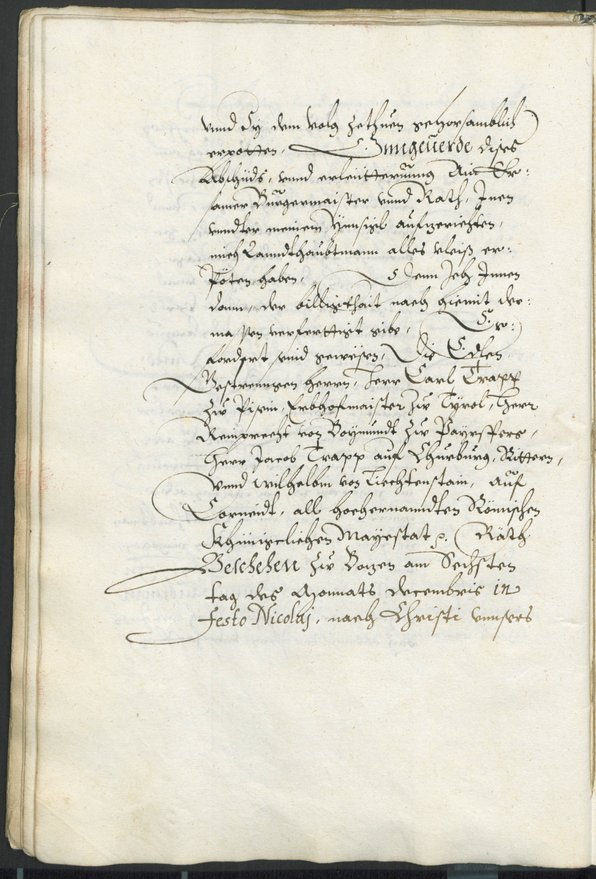 vnnd Sy dem volg zethuen gehorsamblich
erpotten, Onngeuerde dises
Abschids, vnnd erleutterung Ain Er:
samer Burgermaister vnnd Rath, Inen
vnndter meinem Innsigl aufzerichten,
mich Lanndtshaubtmann alles vleiß er:
Peten haben, Dem Ich Innen
dann, der billigkhait nach hiemit der:
massen verferttigt gibe, Er:
fordert vnnd gewesen, Die Edlen
Gestrenngen herren, herr Carl Trapp
Zu Pisein, Erbhofmaister Zu Tyrol, Herr
Reinprecht von Boymundt Zu Payrsperg,
herr Jacob Trapp auf Churburg, Rittern,
vnnd Wilhelbm von Liechtenstain, auf
Corneidt, all hochernanndten Römischen
Khünigclichen Mayestat Räth
Beschehen Zu Bozen am Sechsten
tag des Monnats decembris in
festo Nicolaj, nach Christi vnnsers